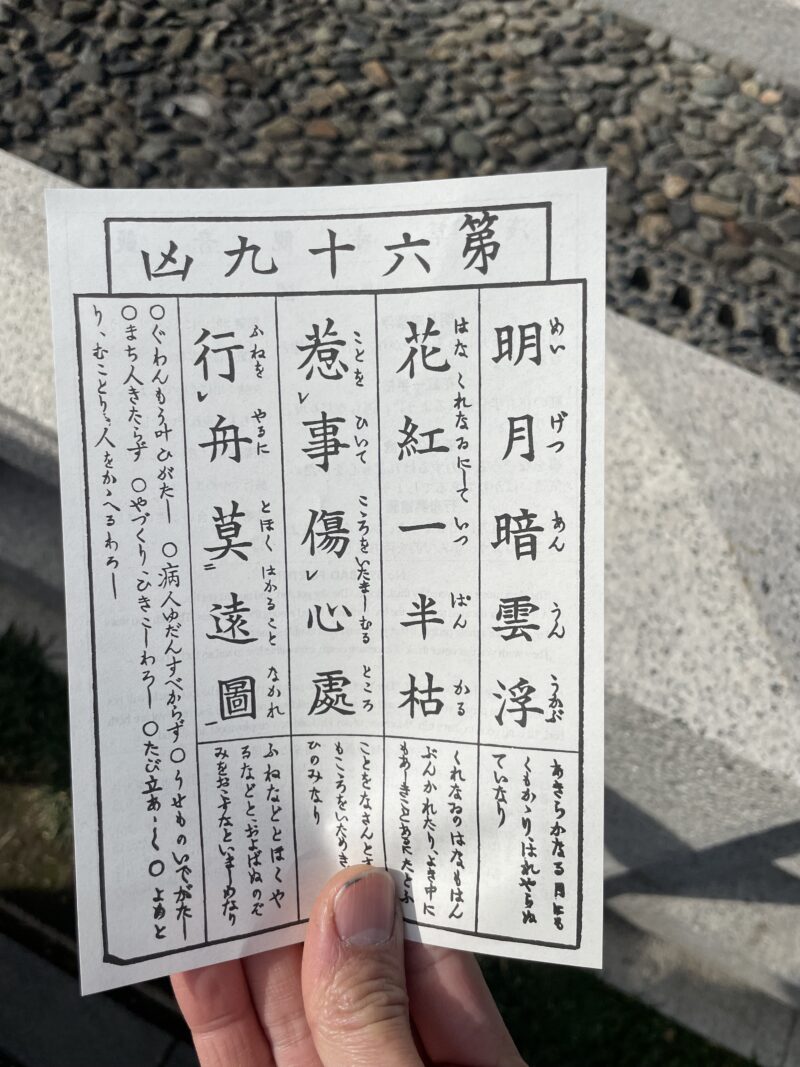 第六十九凶
めい げつ あん うん うかぶ
明月暗雲浮
あきらかなる月にも
くもかゝり、はれやらぬ
ていなり
はな くれなゐにして いつ ぱん かる
花紅一半枯
くれなゐのはなもはん
ぶんかれたり、よき中に
もあしきことあるにたとふ
ことを ひいて こゝろをいたましむる ところ
惹レ事傷レ心處
ことをなさんと
もこころをいため
ひのみなり
ふねを やるに とほく はかること なかれ
行レ舟莫二遠圖一
ふねなどとほくや
るなどと、およばぬのぞ
みをおこすなといましめなり
○ぐわんもう叶ひがたし ○病人ゆだんすべからず○うせものいでがたし
○まち人きたらず ○やづくり、ひきこしわろし ○たび立あしく ○よめと
り、むことり、人をかゝへるわろし